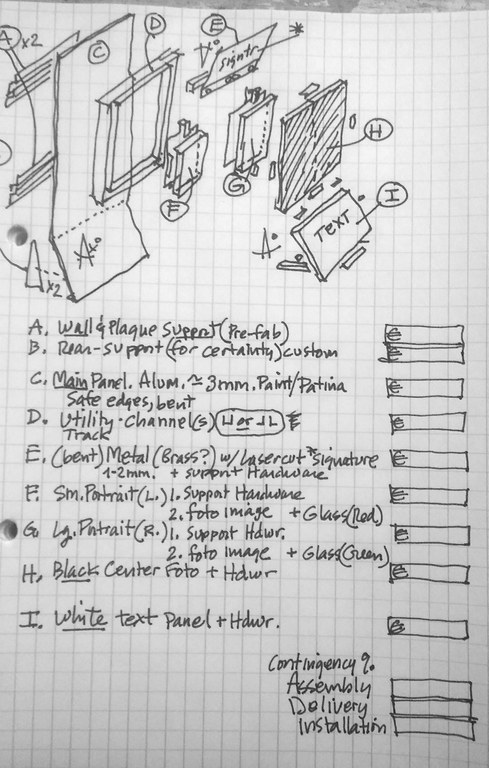 A x2
C
D
E
signtr *
H
G
F
I
TEXT
x2
A. Wall & Plaque Support (Pre-fab)
€
B. Rear-support (for certainty) custom
€
C. Main Panel. Alum. ≈ 3mm. Paint/Patina
€
Safe edges, bent
D. Utility-channel(s)
€
Track
E. (bent) Metal (Brass?) w/ Lasercut *signature
€
1-2mm. + support Hardware
F. Sm. Portrait (L.) 1. Support Hardware
€
2. foto image + Glass (Red)
G. Lg. Portrait (R.) 1. Support Hdwr.
€
2. foto image + Glass (Green)
H. Black Center Foto + Hdwr
€
I. White text panel + Hdwr.
€
Contingency %.
Assembly
Delivery
Installation